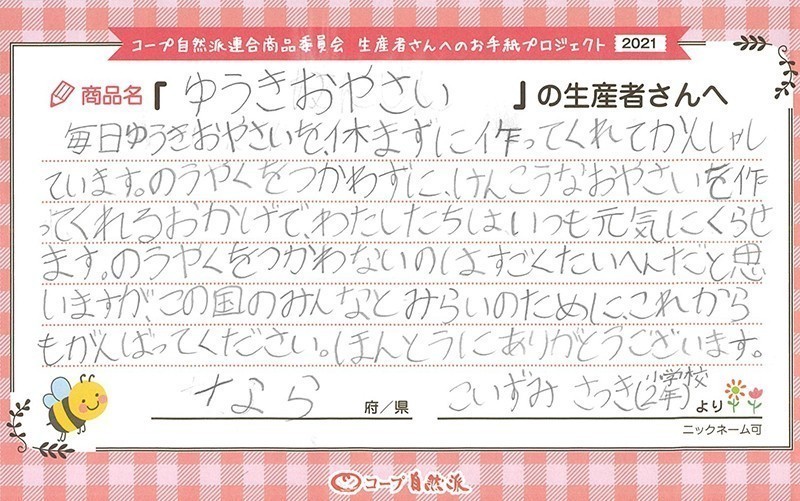 コープ自然派連合商品委員会 生産者さんへのお手紙プロジェクト 2021
商品名「ゆうきおやさい」の生産者さんへ
毎日ゆうきおやさいを、休まずに作ってくれてかんしゃし
ています。のうやくをつかわずに、けんこうなおやさいを作
ってくれるおかげで、わたしたちはいつも元気にくらせ
ます。のうやくをつかわないのはすごくたいへんだと思
いますが、この国のみんなとみらいのために、これから
もがんばってください。ほんとうにありがとうございます。
なら 府／県 こいずみ さつき(小学校2年) より
ニックネーム可
コープ自然派